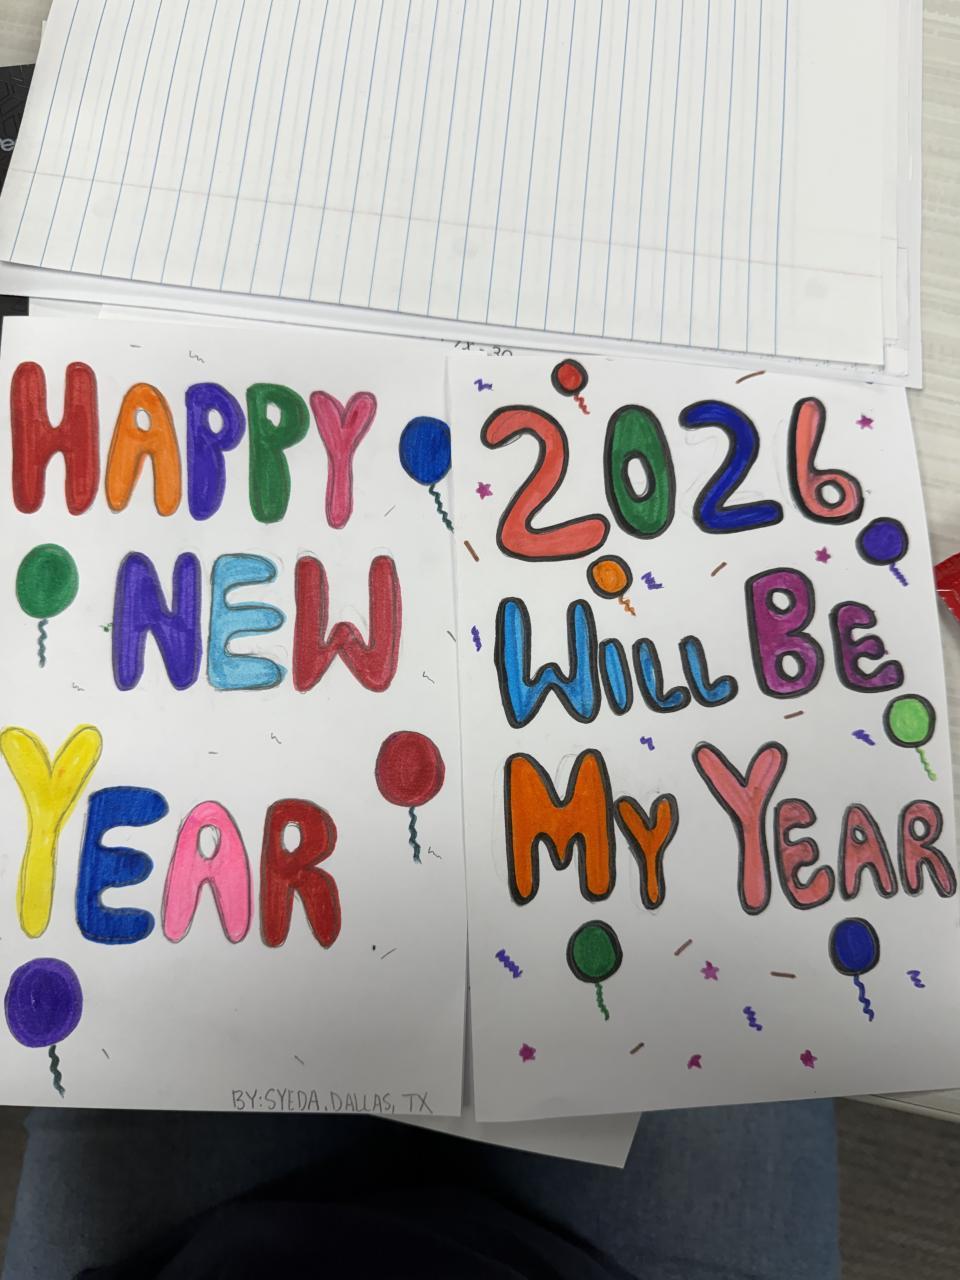 HAPPY
NEW
YEAR
BY:SYEDA.DALLAS, TX
2026
WILL BE
MY YEAR